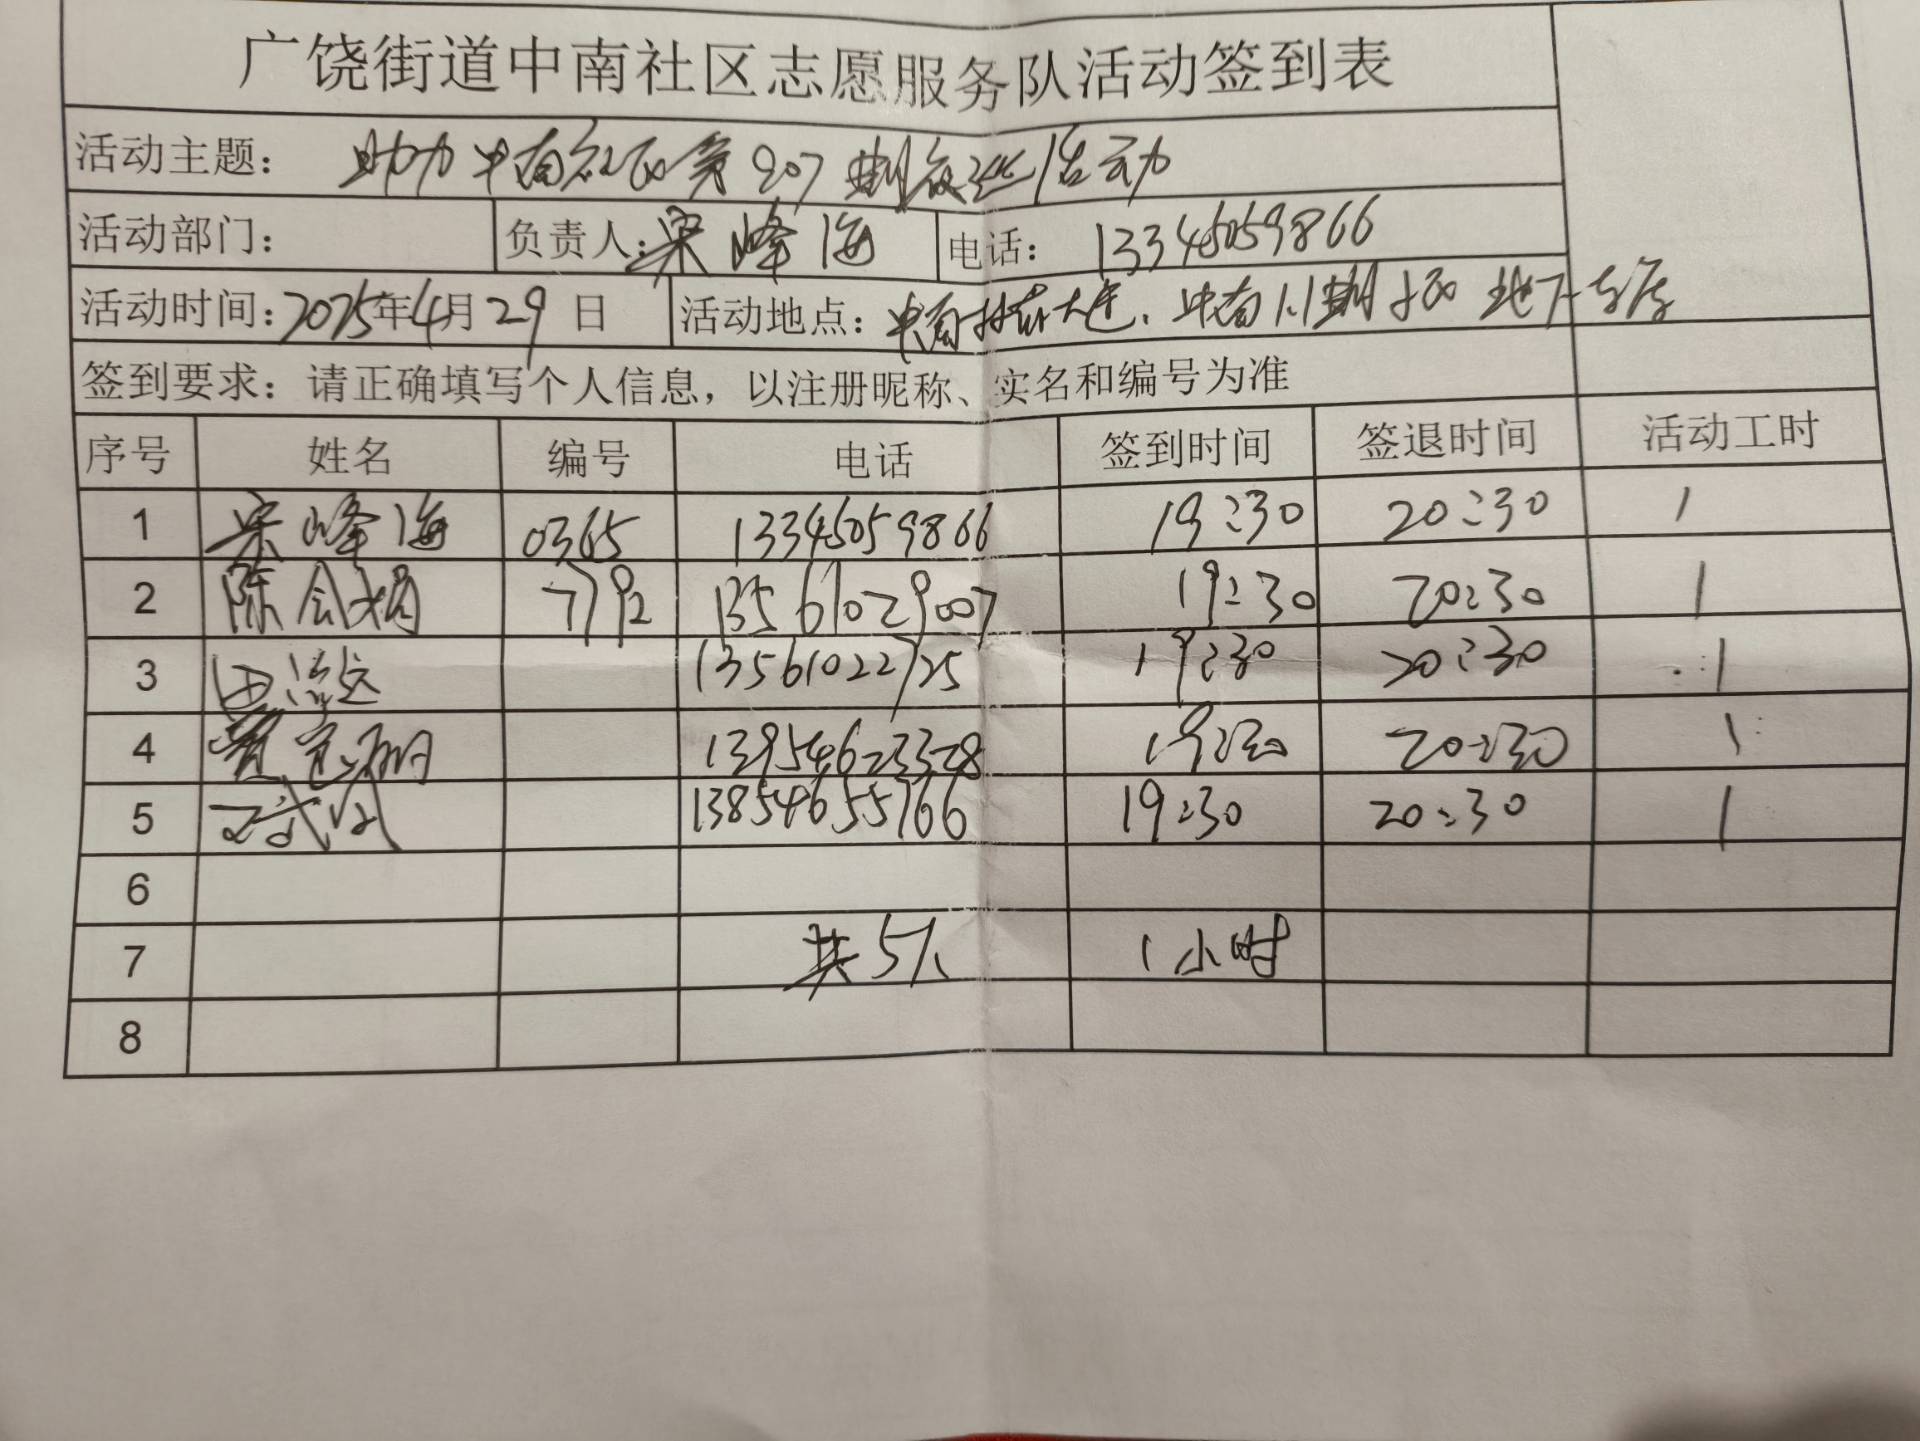 广饶街道中南社区志愿服务队活动签到表
活动主题： 助力中南社区第207期夜巡活动
活动部门： 负责人：梁峰海 电话： 13345059866
活动时间：2025年4月29日 活动地点：中南 中南 期 地下车库
签到要求：请正确填写个人信息，以注册昵称、实名和编号为准
序号 姓名 编号 电话 签到时间 签退时间 活动工时
1 梁峰海 0365 13345059866 19:30 20:30 1
2 陈会娟 7792 13561029007 19:30 20:30 1
3 13561022725 19:30 20:30 1
4 13954623328 19:30 20:30 1
5 13854655766 19:30 20:30 1
6
7 共5人 1小时
8